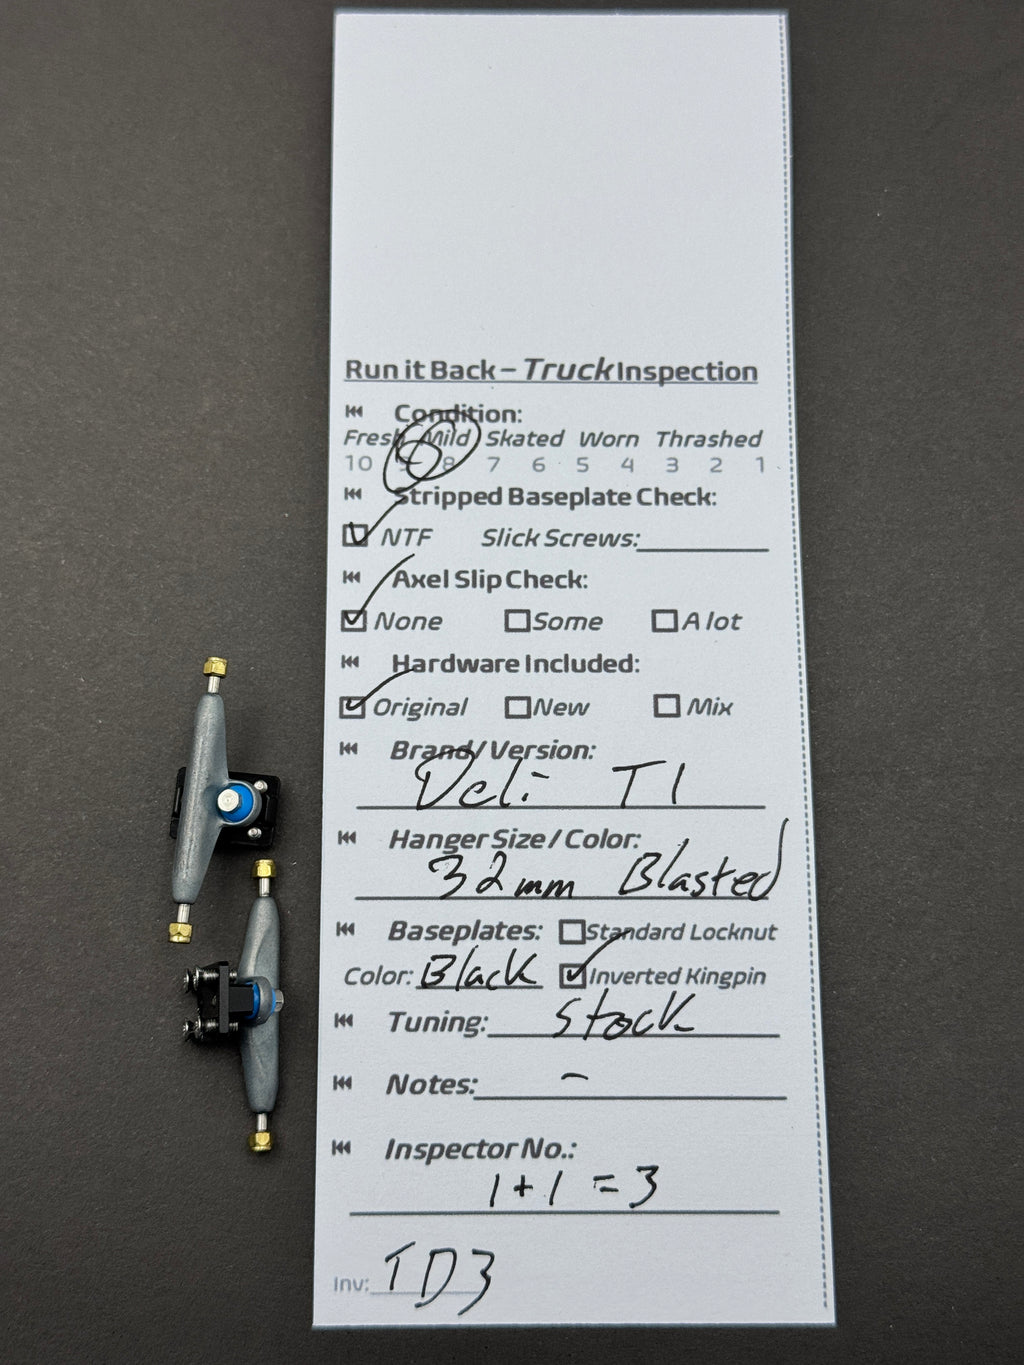 Run it Back – Truck Inspection
Condition:
Fresh Mild Skated Worn Thrashed
10 9 8 7 6 5 4 3 2 1
Stripped Baseplate Check:
NTF Slick Screws:
Axel Slip Check:
None Some A lot
Hardware Included:
Original New Mix
Brand/Version:
Deli T1
Hanger Size / Color:
32mm Blasted
Baseplates: Standard Locknut
Color: Black Inverted Kingpin
Tuning: Stock
Notes: –
Inspector No.:
1+1 = 3
Inv: TD3